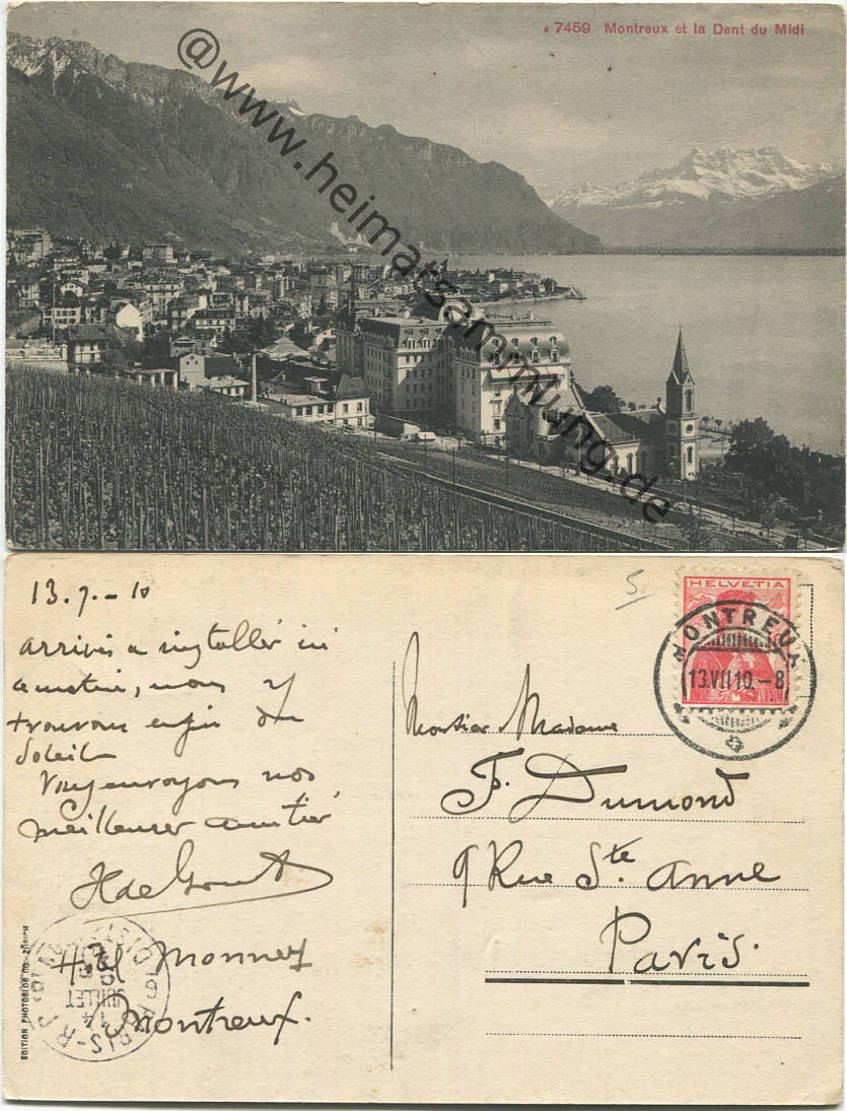 K 7459 Montreux et la Dent du Midi
@www.heimatsammlung.de
13.7.-10
arrivés a installer ici
a matin, nous y
trouvons enfin du
Soleil
Vous envoyons nos
meilleures amitiés
Hotel Monney
Montreux.
EDITION PHOTOGLOB CO. ZÜRICH
5
HELVETIA
MONTREUX
13.VII.10.-8
Monsieur Madame
F. Dumond
9 Rue Ste. Anne
Paris.
PARIS-R.P.
14
JUILLET